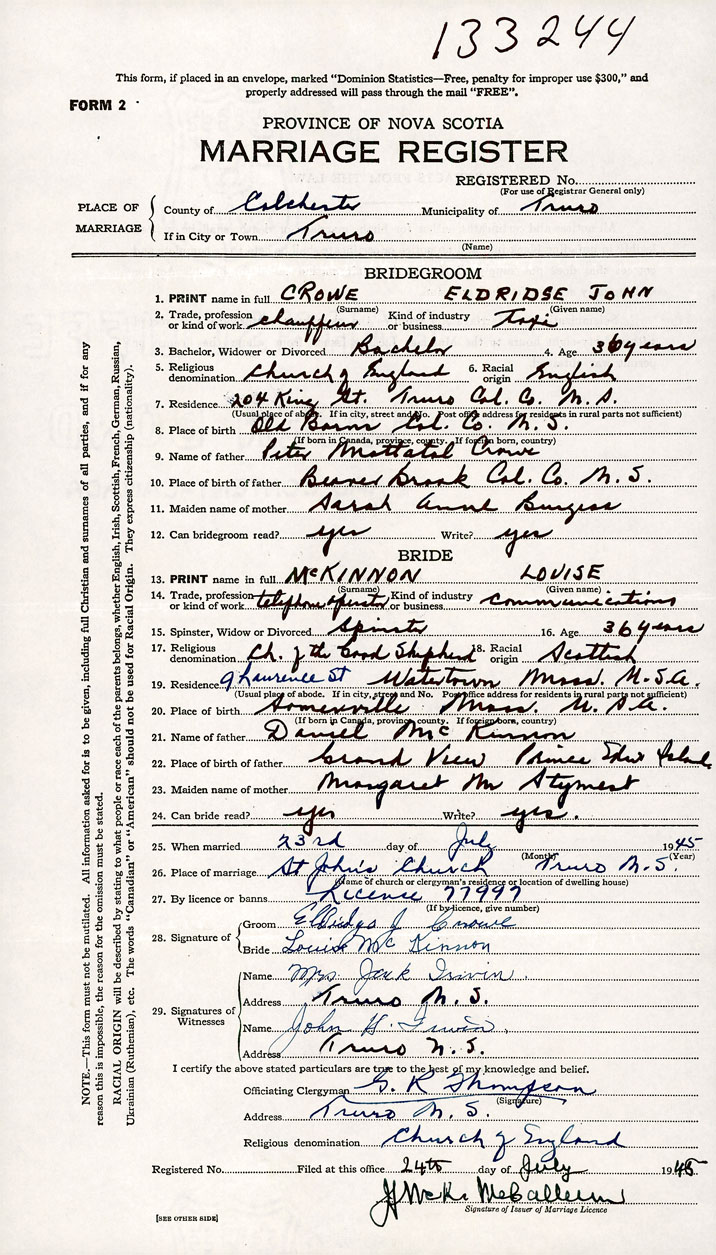 133244
This form, if placed in an envelope, marked "Dominion Statistics—Free, penalty for improper use $300," and
properly addressed will pass through the mail "FREE".
FORM 2
PROVINCE OF NOVA SCOTIA
MARRIAGE REGISTER
REGISTERED No.
(For use of Registrar General only)
PLACE OF MARRIAGE
County of Colchester Municipality of Truro
If in City or Town Truro
(Name)
BRIDEGROOM
1. PRINT name in full CROWE ELDRIDGE JOHN
(Surname) (Given name)
2. Trade, profession or kind of work chauffeur Kind of industry or business Taxi
3. Bachelor, Widower or Divorced Bachelor 4. Age 36 years
5. Religious denomination Church of England 6. Racial origin English
7. Residence 204 King St. Truro Col. Co. N.S.
(Usual place of abode. If in city, street and No. Post office address for residents in rural parts not sufficient)
8. Place of birth Old Barns Col. Co. N.S.
(If born in Canada, province, county. If foreign born, country)
9. Name of father Peter Mattatal Crowe
10. Place of birth of father Beaver Brook Col. Co. N.S.
11. Maiden name of mother Sarah Anne Burgess
12. Can bridegroom read? yes Write? yes
BRIDE
13. PRINT name in full McKINNON LOUISE
(Surname) (Given name)
14. Trade, profession or kind of work telephone operator Kind of industry or business communications
15. Spinster, Widow or Divorced Spinster 16. Age 36 years
17. Religious denomination Ch. of the Good Shepherd 18. Racial origin Scottish
19. Residence 9 Laurence St Watertown Mass. U.S.A.
(Usual place of abode. If in city, street and No. Post office address for residents in rural parts not sufficient)
20. Place of birth Somerville Mass. U.S.A.
(If born in Canada, province, county. If foreign born, country)
21. Name of father Daniel McKinnon
22. Place of birth of father Grand View Prince Edw Island
23. Maiden name of mother Margaret M Stymest
24. Can bride read? yes Write? yes.
25. When married 23rd day of July 1945
(Month) (Year)
26. Place of marriage St John's Church Truro N.S.
(Name of church or clergyman's residence or location of dwelling house)
27. By licence or banns License 77997
(If by licence, give number)
28. Signature of
Groom Eldridge J Crowe
Bride Louise McKinnon
29. Signatures of Witnesses
Name Mrs. Jack Irwin
Address Truro N.S.
Name John H. Irwin
Address Truro N.S.
I certify the above stated particulars are true to the best of my knowledge and belief.
Officiating Clergyman G. R Thompson
(Signature)
Address Truro N.S.
Religious denomination Church of England
Registered No. Filed at this office 24th day of July 1945
J McK. McCallum
Signature of Issuer of Marriage Licence
[SEE OTHER SIDE]
NOTE.—This form must not be mutilated. All information asked for is to be given, including full Christian and surnames of all parties, and if for any
reason this is impossible, the reason for the omission must be stated.
RACIAL ORIGIN will be described by stating to what people or race each of the parents belongs, whether English, Irish, Scottish, French, German, Russian,
Ukrainian (Ruthenian), etc. The words "Canadian" or "American" should not be used for Racial Origin. They express citizenship (nationality).